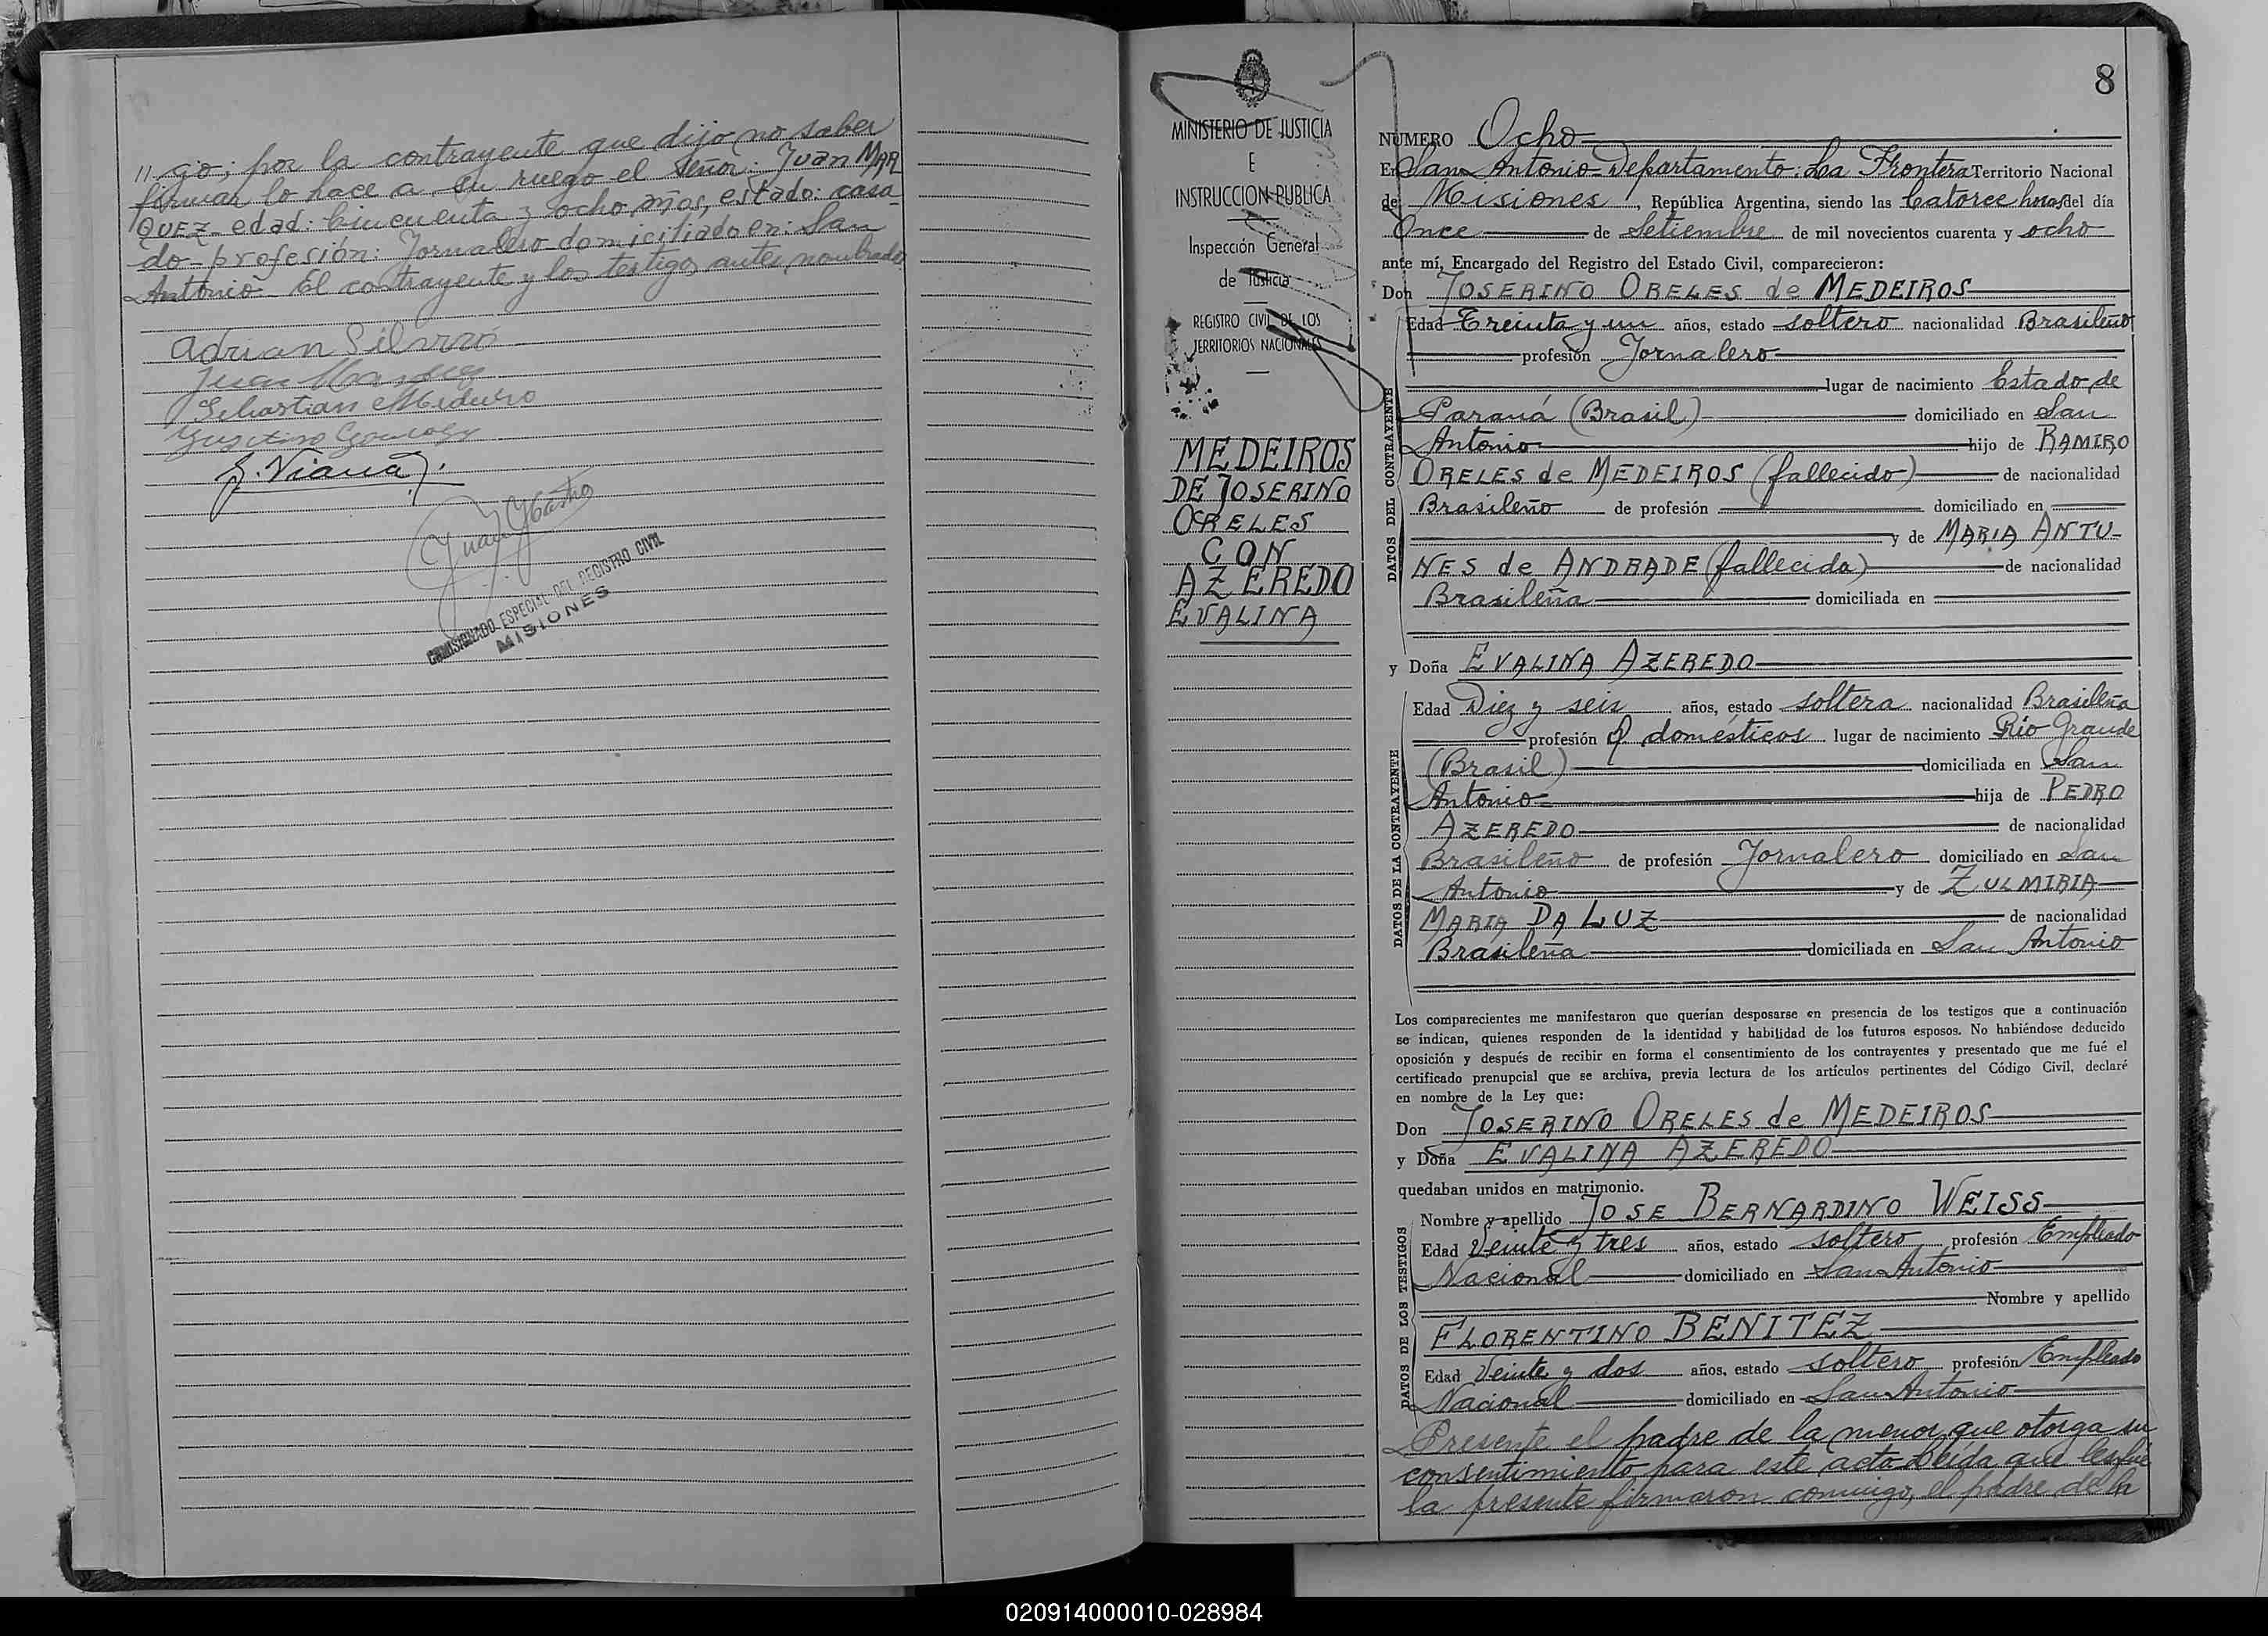 //go; por la contrayente que dijo no saber
firmar lo hace a su ruego el señor: Juan MAR
QUEZ - edad: Cincuenta y ocho años, estado: casa
do - profesión: Jornalero - domiciliado en: San
Antonio - El contrayente y los testigos antes nombrados
Adrian
Juan Marquez
Sebastian
G. Viana
COMISIONADO ESPECIAL DEL REGISTRO CIVIL
MISIONES
MINISTERIO DE JUSTICIA
E
INSTRUCCION PUBLICA
Inspección General
de Justicia
REGISTRO CIVIL DE LOS
TERRITORIOS NACIONALES
MEDEIROS
DE JOSERINO
ORELES
CON
AZEREDO
EVALINA
8
NÚMERO Ocho
En San Antonio - Departamento: La Frontera Territorio Nacional
de Misiones, República Argentina, siendo las Catorce horas del día
Once de Setiembre de mil novecientos cuarenta y ocho
ante mí, Encargado del Registro del Estado Civil, comparecieron:
Don JOSERINO ORELES de MEDEIROS
DATOS DEL CONTRAYENTE
Edad Treinta y un años, estado soltero nacionalidad Brasileño
profesión Jornalero
lugar de nacimiento Estado de
Paraná (Brasil) domiciliado en San
Antonio hijo de RAMIRO
ORELES de MEDEIROS (fallecido) de nacionalidad
Brasileño de profesión domiciliado en
y de MARIA ANTU-
NES de ANDRADE (fallecida) de nacionalidad
Brasileña domiciliada en
y Doña EVALINA AZEREDO
DATOS DE LA CONTRAYENTE
Edad Diez y seis años, estado soltera nacionalidad Brasileña
profesión Q. domésticos lugar de nacimiento Río Grande
(Brasil) domiciliada en San
Antonio hija de PEDRO
AZEREDO de nacionalidad
Brasileño de profesión Jornalero domiciliado en San
Antonio y de ZULMIRIA
MARIA DA LUZ de nacionalidad
Brasileña domiciliada en San Antonio
Los comparecientes me manifestaron que querían desposarse en presencia de los testigos que a continuación
se indican, quienes responden de la identidad y habilidad de los futuros esposos. No habiéndose deducido
oposición y después de recibir en forma el consentimiento de los contrayentes y presentado que me fué el
certificado prenupcial que se archiva, previa lectura de los artículos pertinentes del Código Civil, declaré
en nombre de la Ley que:
Don JOSERINO ORELES de MEDEIROS
y Doña EVALINA AZEREDO
quedaban unidos en matrimonio.
DATOS DE LOS TESTIGOS
Nombre y apellido JOSE BERNARDINO WEISS
Edad Veinte y tres años, estado soltero profesión Empleado
Nacional domiciliado en San Antonio
Nombre y apellido
FLORENTINO BENITEZ
Edad Veinte y dos años, estado soltero profesión Empleado
Nacional domiciliado en San Antonio
Presente el padre de la menor que otorga su
consentimiento para este acto. Leída que les fué
la presente firmaron conmigo, el padre de la
020914000010-028984